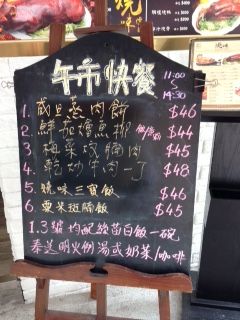 燒味
午市快餐
11:00
~
14:30
1. 咸旦蒸肉餅 $46
2. 鮮茄燴魚柳 飯/意 $44
3. 梅菜炆腩肉 $45
4. 乾炒牛肉一丁 $48
5. 燒味三寶飯 $46
6. 粟米斑腩飯 $45
1.3 號均配絲苗白飯一碗
奉送明火例湯或奶茶/咖啡